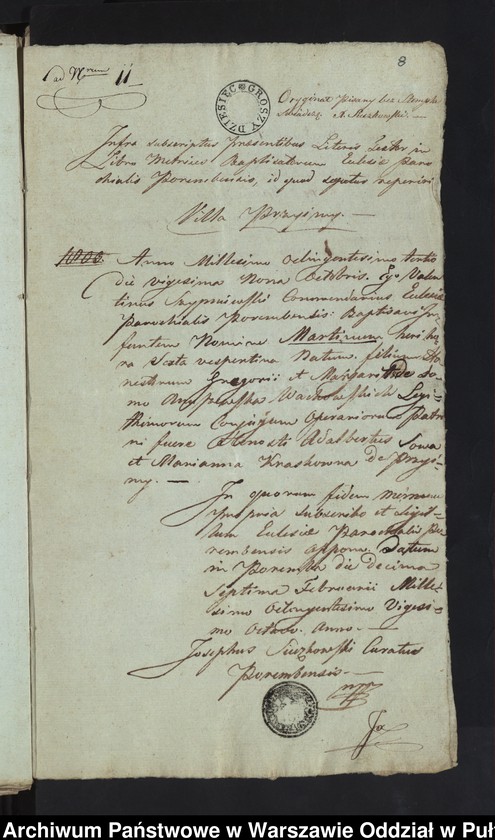 8
ad Nrum 11
DZIESIĘĆ GROSZY
Oryginał pisany bez Stempla
Infra subscriptus praesentibus Literis Testor in
Libro Metrices Baptisatorum Eclesie Paro
chialis Porembensis, id quod sequtur reperiri
Villa Przyimy. —
Anno Millesimo Octingentesimo tertio
die vigesima Nona Octobris. Ego Valen
tinus Commendarius Eclesie
Parochialis Porembensis: Baptisavi In
fantem Nomine Martinum, heri ho
ra Sexta vespertina Natum. filium Ho
nestorum Gregorii et Margarithe de do
mo Legi=
thimorum Conjugum Patri
ni fuere Honesti Adalbertus Sowa
et Marianna Kraskowna de Przyi=
my. —
In quorum fidem me manu
propria subscribo et Sigil=
lum Eclesiæ Parochialis Po
rembensis appono. Datum
in Poremba die decima
Septima Februarii Mille=
simo Octingentesimo Vigesi=
mo Octavo. Anno. —
Josephus Suzkowski Curatus
Porembensis. —
mpp
Archiwum Państwowe w Warszawie Oddział w Puł